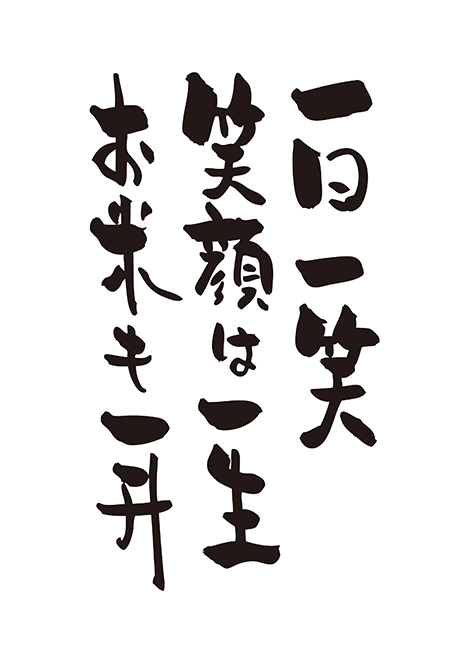 一日一笑
笑顔は一生
お米も一升